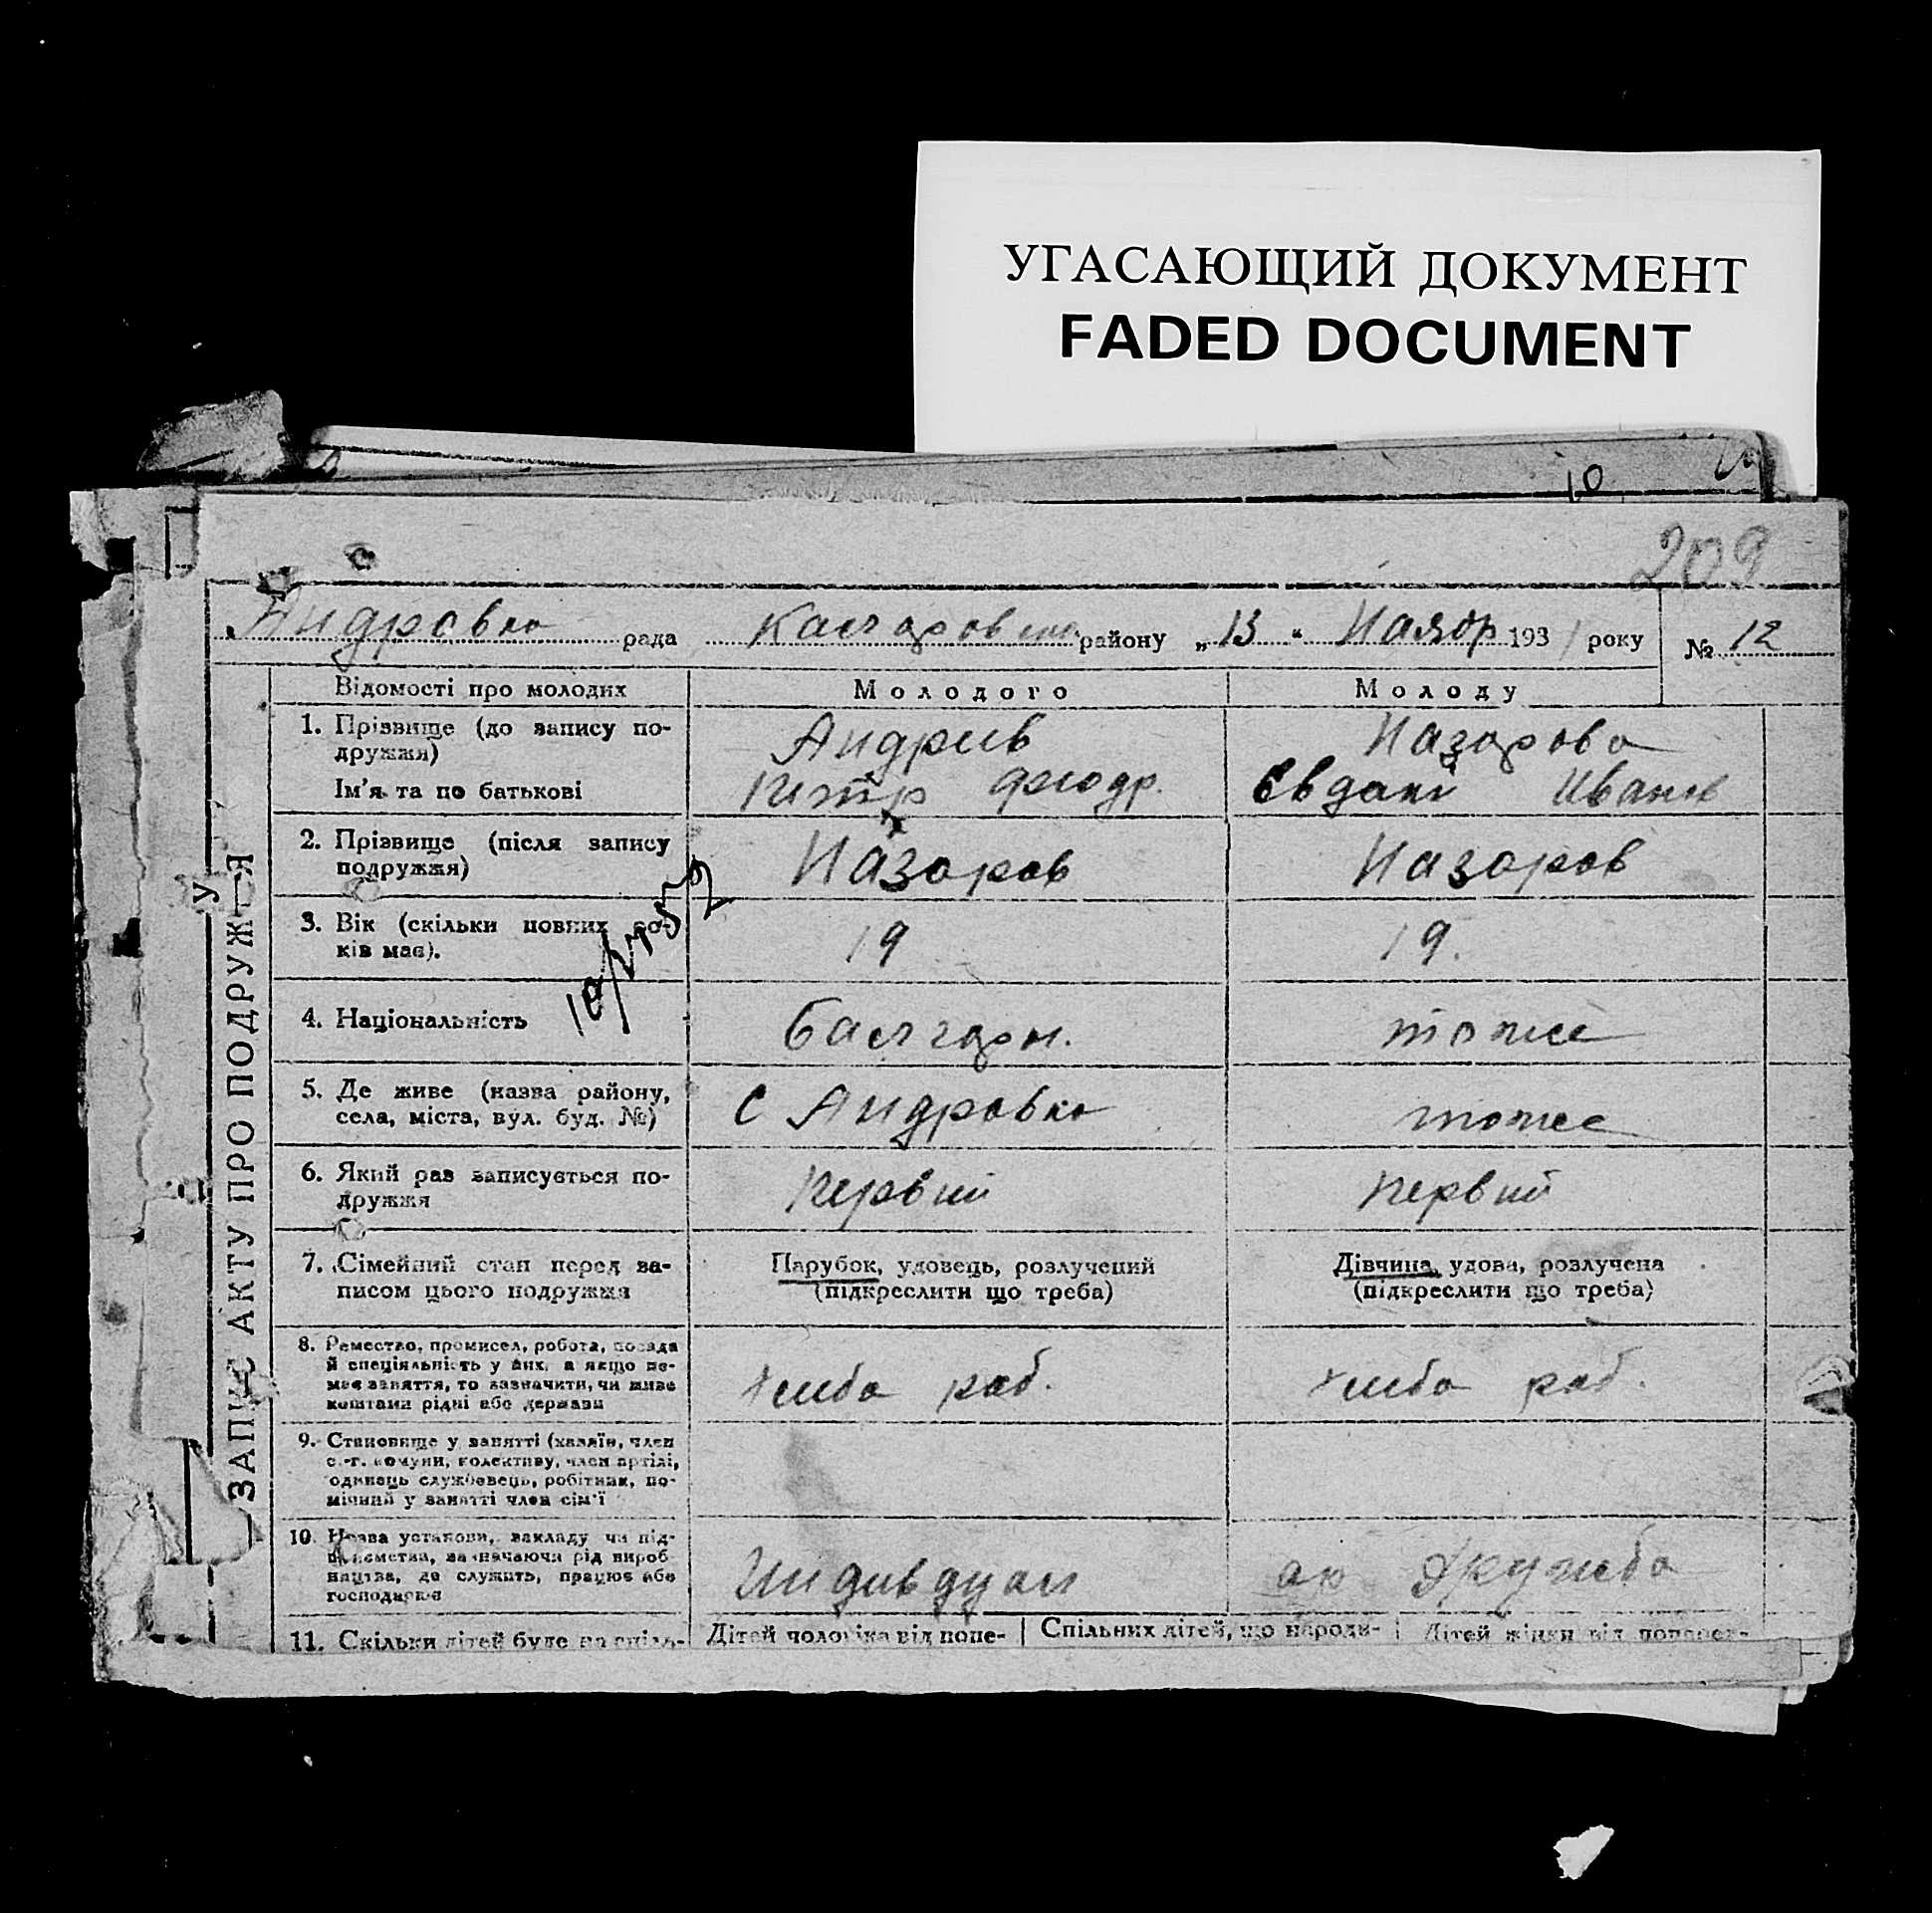 УГАСАЮЩИЙ ДОКУМЕНТ
FADED DOCUMENT
10
209
Андровка рада Калчаровка району „ 13 “ Ноябр 1931 року № 12
ЗАПИС АКТУ ПРО ПОДРУЖЖЯ
Відомості про молодих Молодого Молоду
1. Прізвище (до запису по- Андрив Назарова
дружжя)
Ім'я та по батькові Петр Фиодр. Евдокі Иванов
2. Прізвище (після запису Назаров Назаров
подружжя)
3. Вік (скільки повних ро- 19 19.
ків має).
4. Національність балгарн. тоже
5. Де живе (назва району, С Андровка тоже
села, міста, вул. буд. №)
6. Який раз записується по- Первий Первий
дружжя
7. Сімейний стан перед за- Парубок, удовець, розлучений Дівчина, удова, розлучена
писом цього подружжя (підкреслити що треба) (підкреслити що треба)
8. Ремество, промисел, робота, посада
й спеціяльність у них, а якщо не-
має заняття, то зазначити, чи живе хлиба раб. хлиба раб.
коштами рідні або держави
9. Становище у занятті (хазяїн, член
с.-г. комуни, колективу, член артілі,
одинець службовець, робітник, по-
мічний у занятті член сім'ї
10. Назва установи, закладу чи під-
приємства, зазначаючи рід вироб-
ництва, де служить, працює або Индивдуал Дружба
господарює
11. Скільки дітей буде на спіль- Дітей чоловіка від попе- Спільних дітей, що народи- Дітей жінки від поперед-